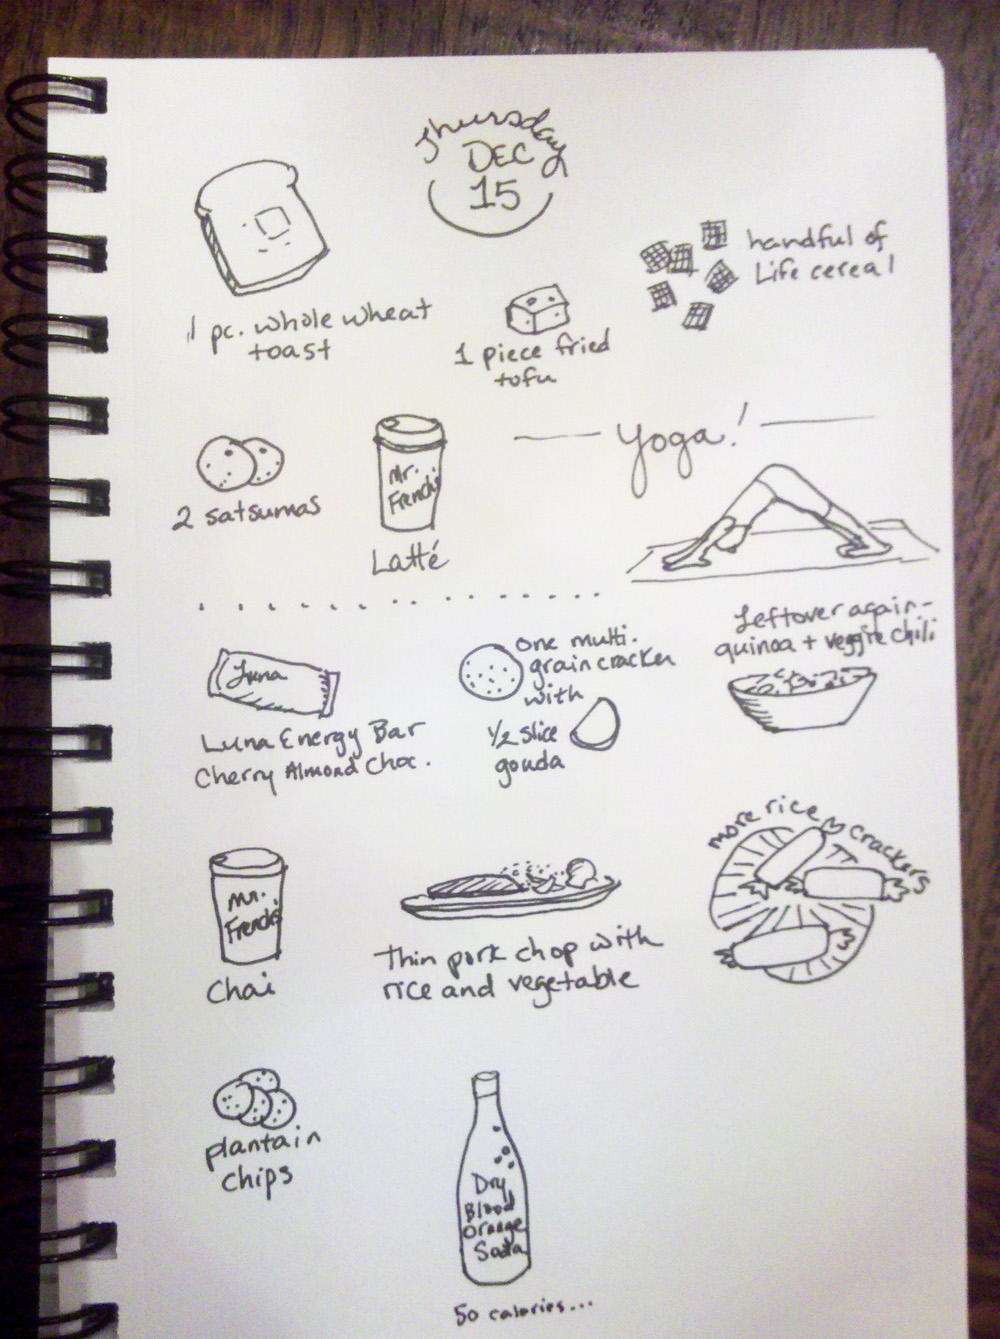 Thursday
DEC
15
1 pc. whole wheat
toast
1 piece fried
tofu
handful of
Life cereal
2 satsumas
Mr.
French's
Latté
Yoga!
Luna
Luna Energy Bar
Cherry Almond Choc.
one multi-
grain cracker
with
1/2 slice
gouda
Leftover again-
quinoa + veggie chili
Mr.
French's
Chai
Thin pork chop with
rice and vegetable
more rice crackers
plantain
chips
Dry
Blood
Orange
Soda
50 calories...